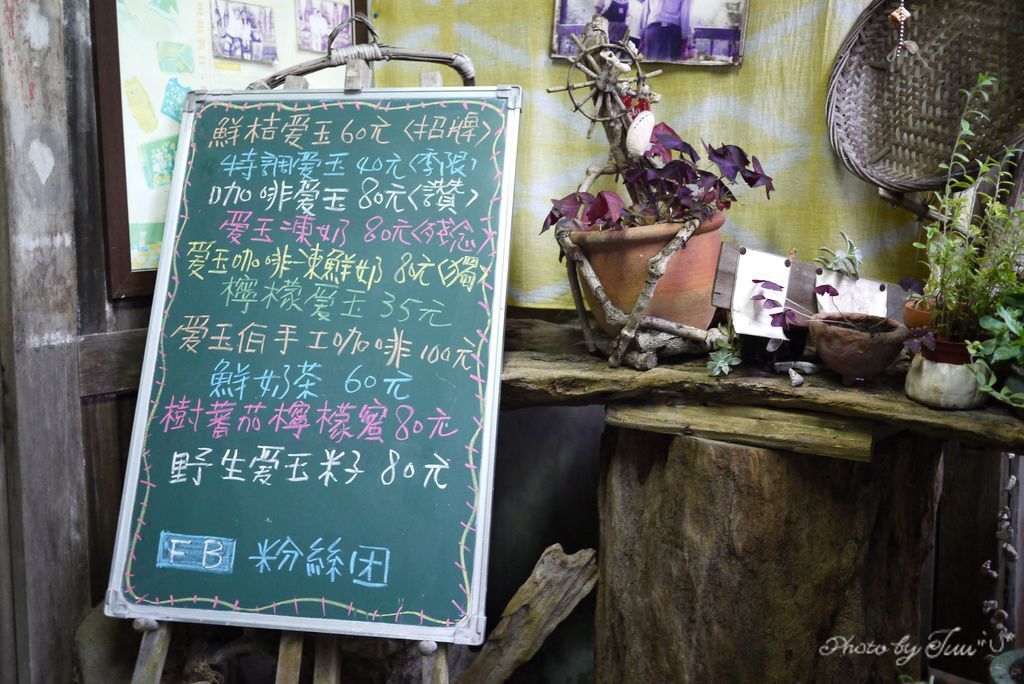 鮮桔愛玉60元〈招牌〉
特調愛玉40元〈季限〉
咖啡愛玉80元〈讚〉
愛玉凍奶80元〈殘念〉
愛玉咖啡凍鮮奶80元〈獨〉
檸檬愛玉35元
愛玉佰手工咖啡100元
鮮奶茶 60元
樹蕃茄檸檬蜜80元
野生愛玉籽80元
FB 粉絲团
Photo by